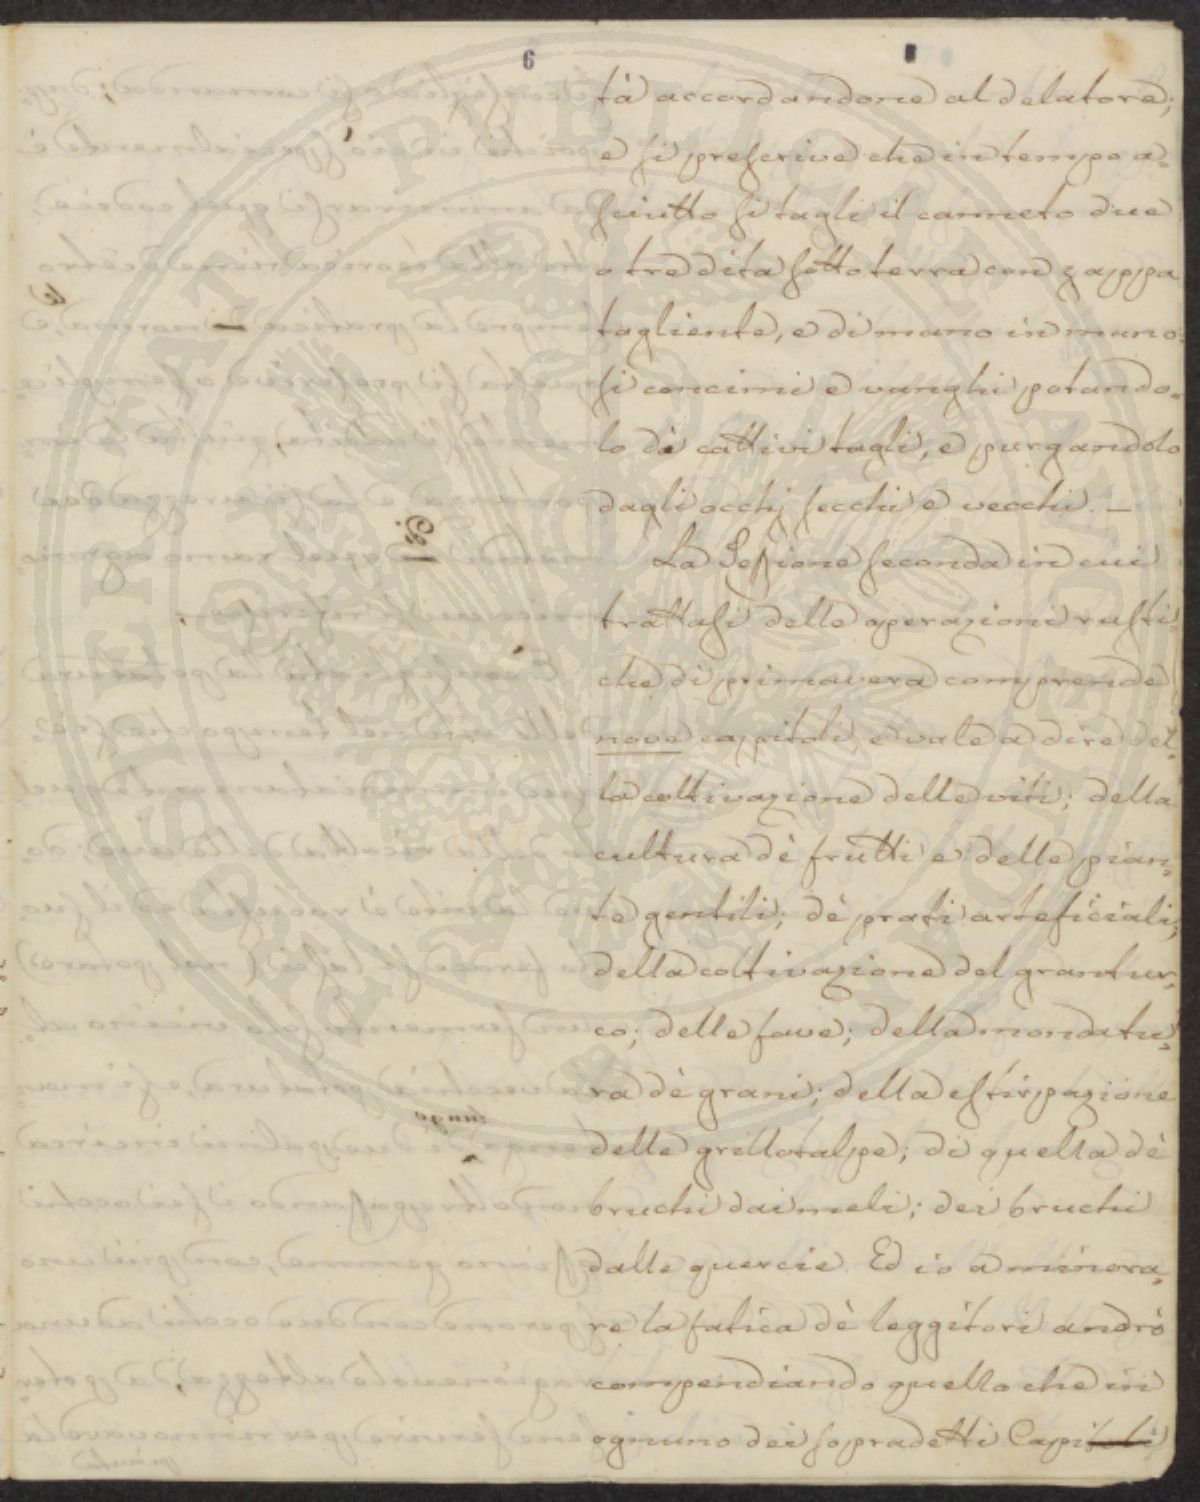 6
tà accordandone al delatore;
e si prescrive che in tempo a=
sciutto si tagli il canneto due
o tre dita sotto terra con zappa
tagliente, e di mano in mano
si concimi e vanghi potando=
lo dè cattivi tagli, e purgandolo
dagli occhj secchi e vecchi. —
La Sessione seconda in cui
trattasi delle operazioni rusti=
che di primavera comprende
nove capitoli, e vale a dire del=
la coltivazione delle viti; della
cultura dè frutti e delle pian=
te gentili; dè prati arteficiali;
della coltivazione del grantur=
co; delle fave; della mondatu=
ra dè grani; della estirpazione
delle grillotalpe; di quella dè
bruchi dai meli; dei bruchi
dalle quercie. Ed io a minora=
re la fatica dè leggitori andrò
compendiando quello che in
ognuno dei sopradetti Capitoli